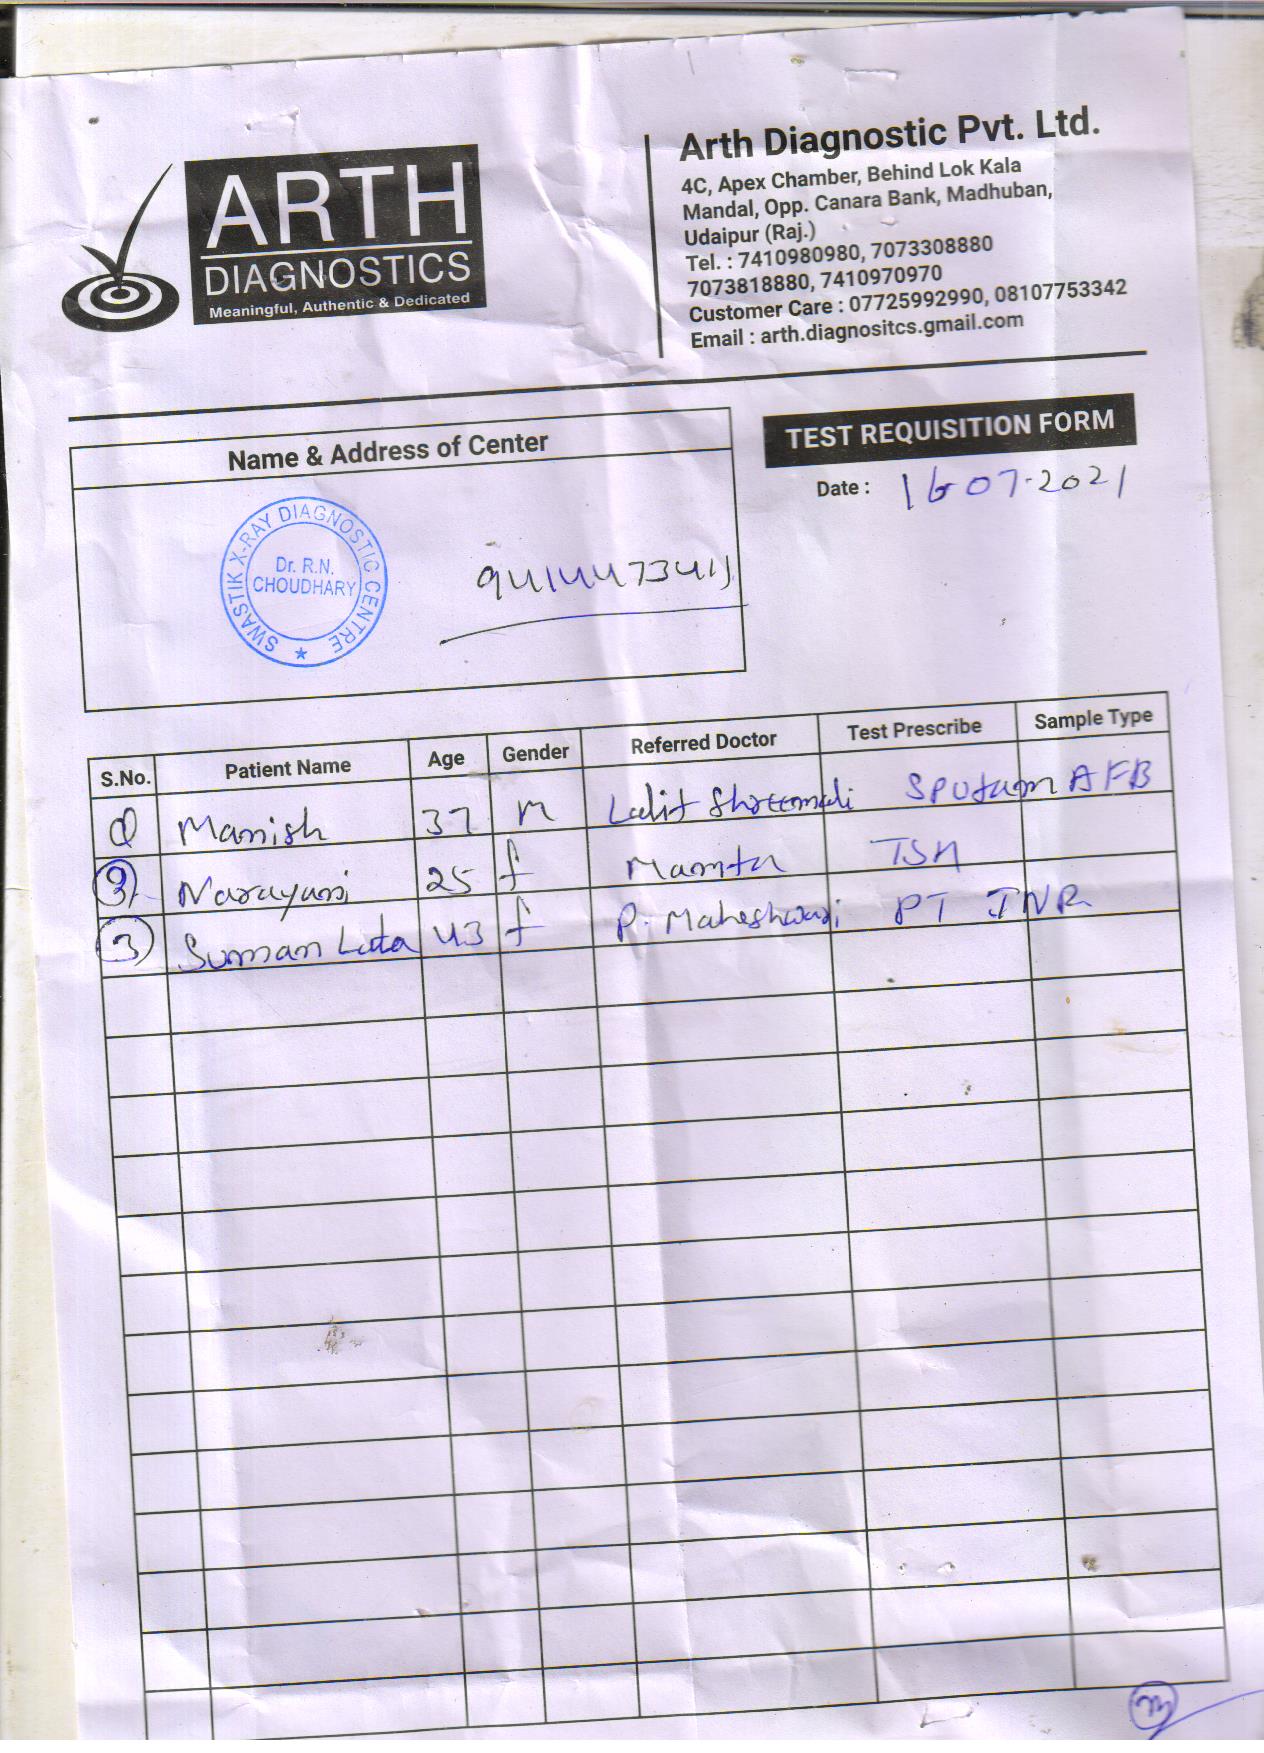 ARTH
DIAGNOSTICS
Meaningful, Authentic & Dedicated
Arth Diagnostic Pvt. Ltd.
4C, Apex Chamber, Behind Lok Kala
Mandal, Opp. Canara Bank, Madhuban,
Udaipur (Raj.)
Tel. : 7410980980, 7073308880
7073818880, 7410970970
Customer Care : 07725992990, 08107753342
Email : arth.diagnositcs.gmail.com
Name & Address of Center
SWASTIK X-RAY DIAGNOSTIC CENTRE
Dr. R.N.
CHOUDHARY
TEST REQUISITION FORM
Date : 16-07-2021
S.No. Patient Name Age Gender Referred Doctor Test Prescribe Sample Type
Manish 37 M Lalit Shreemali Sputum AFB
Narayani 25 f Mamta TSH
3 Suman Lata 43 f P. Maheshwari PT INR